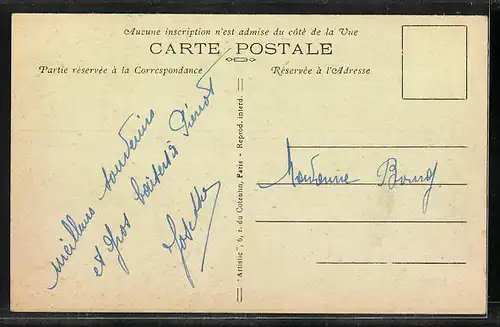 Aucune inscription n'est admise du côté de la Vue
CARTE POSTALE
Partie réservée à la Correspondance
Réservée à l'Adresse
meilleurs souvenirs
et gros baisers à Pierrot
Josette
Madame Bourg
"Artistic", 6, r. du Cotentin, Paris - Reprod. interd.